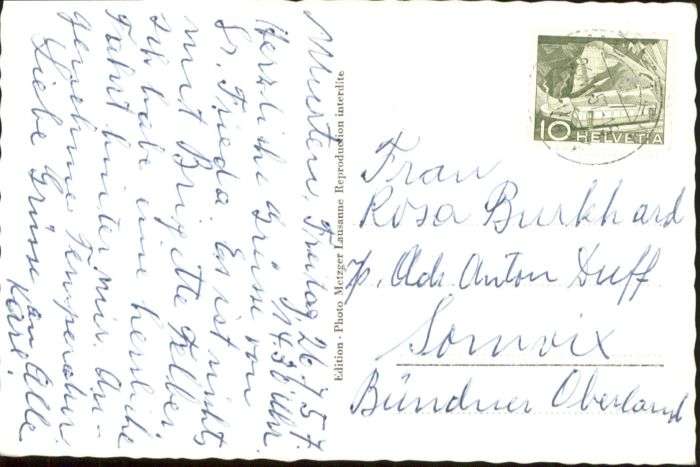 Murten, Freitag 26.7.57
14.30 Uhr.
Herzliche Grüsse von
Sr. Frieda. Es ist nichts
mit Brigitte Felber
Ich habe eine herrliche
Fahrt hinter mir. An-
genehme Temperatur.
Liebe Grüsse an Alle
Edition · Photo Metzger Lausanne Reproduction interdite
10 HELVETIA
Frau
Rosa Burkhard
p. Adr. Anton Duff
Somvix
Bündner Oberland